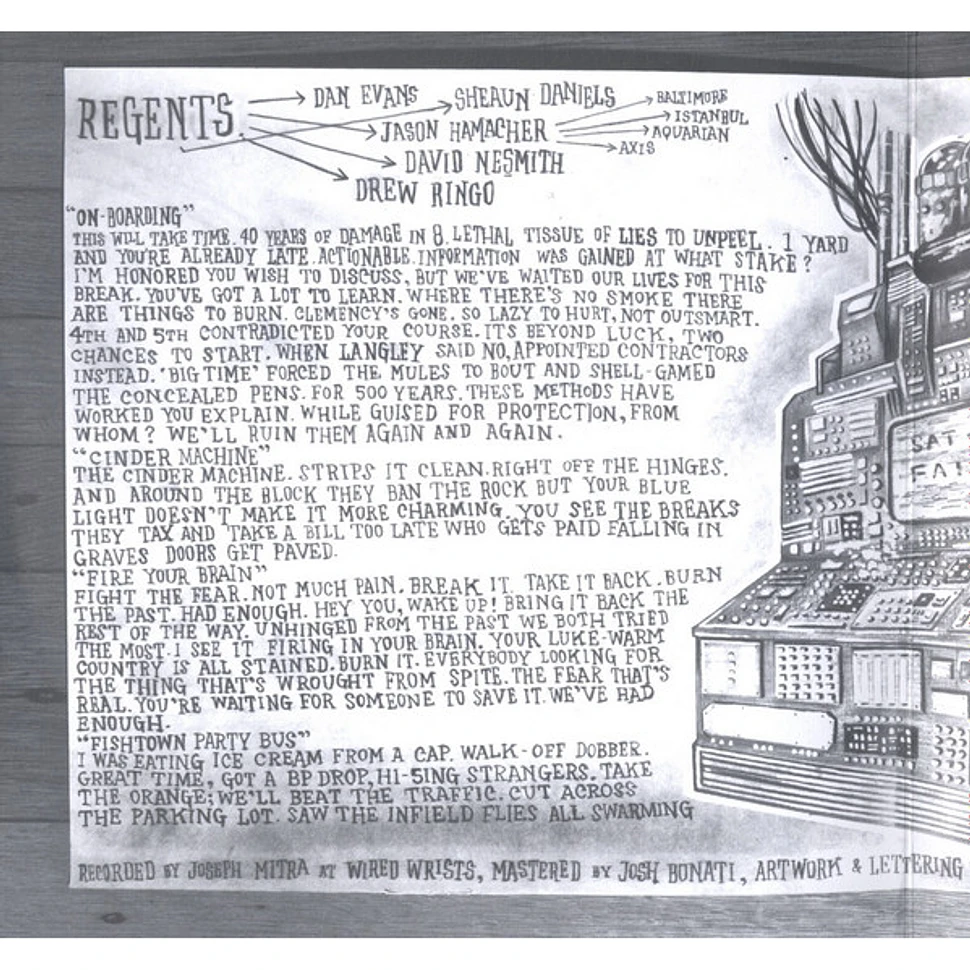 REGENTS.
DAN EVANS
SHEAUN DANIELS
JASON HAMACHER
BALTIMORE
ISTANBUL
AQUARIAN
AXIS
DAVID NESMITH
DREW RINGO
"ON-BOARDING"
THIS WILL TAKE TIME. 40 YEARS OF DAMAGE IN 8. LETHAL TISSUE OF LIES TO UNPEEL. 1 YARD
AND YOU'RE ALREADY LATE. ACTIONABLE INFORMATION WAS GAINED AT WHAT STAKE?
I'M HONORED YOU WISH TO DISCUSS, BUT WE'VE WAITED OUR LIVES FOR THIS
BREAK. YOU'VE GOT A LOT TO LEARN. WHERE THERE'S NO SMOKE THERE
ARE THINGS TO BURN. CLEMENCY'S GONE. SO LAZY TO HURT, NOT OUTSMART.
4TH AND 5TH CONTRADICTED YOUR COURSE. ITS BEYOND LUCK, TWO
CHANCES TO START. WHEN LANGLEY SAID NO, APPOINTED CONTRACTORS
INSTEAD. 'BIG TIME' FORCED THE MULES TO BOUT AND SHELL-GAMED
THE CONCEALED PENS. FOR 500 YEARS. THESE METHODS HAVE
WORKED YOU EXPLAIN. WHILE GUISED FOR PROTECTION, FROM
WHOM? WE'LL RUIN THEM AGAIN AND AGAIN.
"CINDER MACHINE"
THE CINDER MACHINE. STRIPS IT CLEAN. RIGHT OFF THE HINGES.
AND AROUND THE BLOCK THEY BAN THE ROCK BUT YOUR BLUE
LIGHT DOESN'T MAKE IT MORE CHARMING. YOU SEE THE BREAKS
THEY TAX AND TAKE A BILL TOO LATE WHO GETS PAID FALLING IN
GRAVES DOORS GET PAVED.
"FIRE YOUR BRAIN"
FIGHT THE FEAR. NOT MUCH PAIN. BREAK IT. TAKE IT BACK. BURN
THE PAST. HAD ENOUGH. HEY YOU, WAKE UP! BRING IT BACK THE
REST OF THE WAY. UNHINGED FROM THE PAST WE BOTH TRIED
THE MOST. I SEE IT FIRING IN YOUR BRAIN. YOUR LUKE-WARM
COUNTRY IS ALL STAINED. BURN IT. EVERYBODY LOOKING FOR
THE THING THAT'S WROUGHT FROM SPITE. THE FEAR THAT'S
REAL. YOU'RE WAITING FOR SOMEONE TO SAVE IT. WE'VE HAD
ENOUGH.
"FISHTOWN PARTY BUS"
I WAS EATING ICE CREAM FROM A CAP. WALK-OFF DOBBER.
GREAT TIME, GOT A BP DROP, HI-5ING STRANGERS. TAKE
THE ORANGE; WE'LL BEAT THE TRAFFIC. CUT ACROSS
THE PARKING LOT. SAW THE INFIELD FLIES ALL SWARMING
RECORDED BY JOSEPH MITRA AT WIRED WRISTS, MASTERED BY JOSH BONATI, ARTWORK & LETTERING
SAT
FA